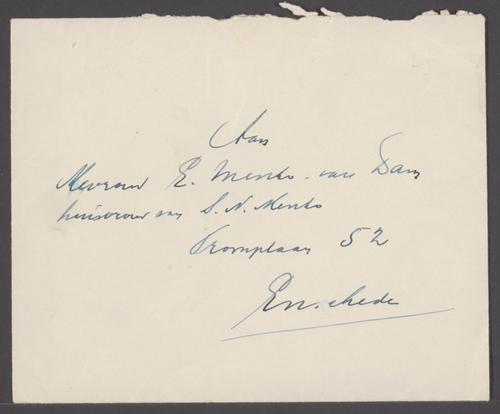 Aan
Mevrouw E. Menko-van Dam
huisvrouw van S.N. Menko
Tromplaan 52
Enschede